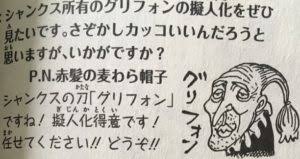 シャンクス所有のグリフォンの擬人化をぜひ
見たいです。さぞかしカッコいいんだろうと
思いますが、いかがですか?
P.N.赤髪の麦わら帽子
シャンクスの刀「グリフォン」
ですね！擬人化得意です！
任せてください!! どうぞ!!
グリフォン